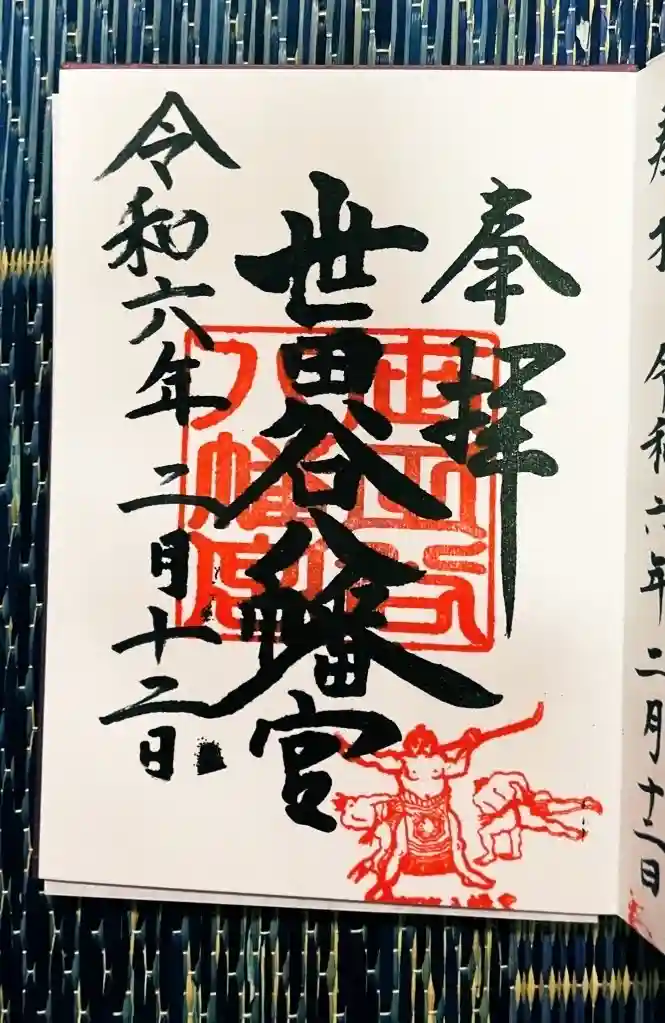 奉拝
世田谷八幡宮
令和六年二月十二日
世田谷
八幡宮
令和六年二月十二日